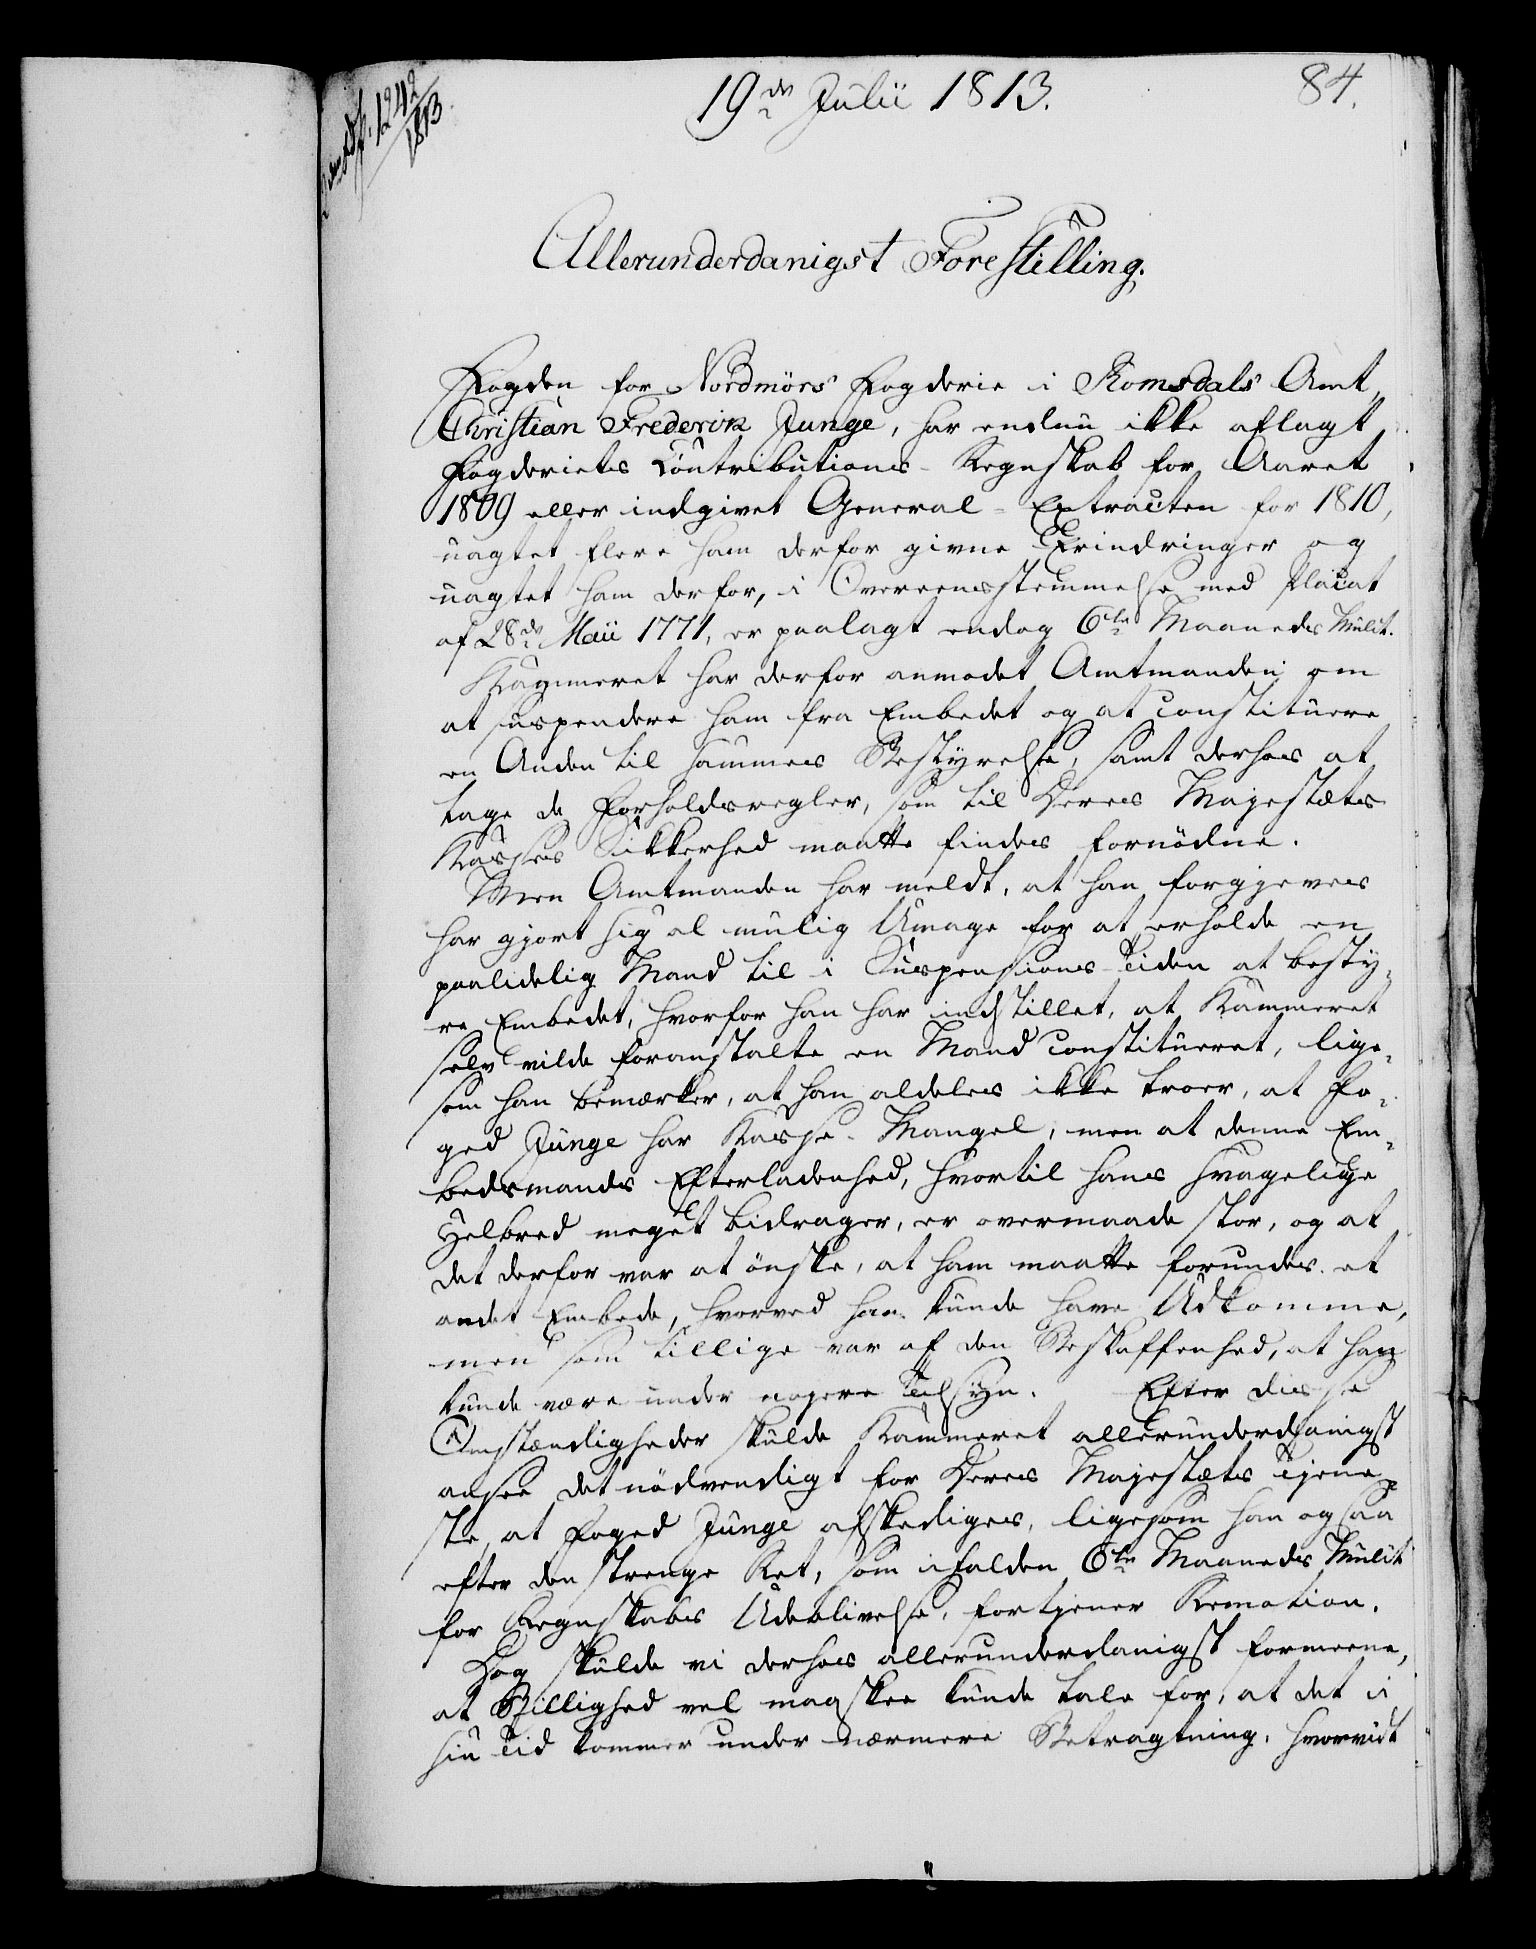 1242
1813
19de Julii 1813.
84.
Allerunderdanigst Forestilling.
Fogden for Nordmörs Fogderie i Romsdals Amt,
Christian Frederik Junge, har endnu ikke aflagt
Fogderiets Contributions-Regnskab for Aaret
1809 eller indgivet General-Extracten for 1810,
uagtet flere ham derfor givne Erindringer og
uagtet ham derfor, i Overeensstemmelse med Placat
af 28de Maii 1771, er paalagt endog 6te Maaneds Mulct.
Kammeret har derfor anmodet Amtmanden om
at suspendere ham fra Embedet og at constituere
en Anden til sammes Bestyrelse, samt derhos at
tage de Forholdsregler, som til Deres Majestæts
Kasses Sikkerhed maatte findes fornödne.
Men Amtmanden har meldt, at han forgjeves
har gjort sig al mulig Umage for at erholde en
paalidelig Mand til i Suspensions-Tiden at besty-
re Embedet, hvorfor han har indstillet, at Kammeret
selv vilde foranstalte en Mand constitueret, lige-
som han bemærker, at han aldeles ikke troer, at Fo-
ged Junge har Kasse-Mangel, men at denne Em-
bedsmands Efterladenhed, hvortil hans svagelige
Helbred meget bidrager, er overmaade stor, og at
det derfor var at önske, at ham maatte forundes et
andet Embede, hvorved han kunde have Udkomme,
men som tillige var af den Beskaffenhed, at han
kunde være under nöjere Tilsyn. Efter disse
Omstændigheder skulde Kammeret allerunderdanigst
ansee det nödvendigt for Deres Majestæts Tjene-
ste, at Foged Junge afskediges, ligesom han ogsaa
efter den strenge Ret, som ifalden 6te Maaneds Mulct
for Regnskabs Udeblivelse, fortjener Remotion.
Dog skulde vi derhos allerunderdanigst formeene,
at Billighed vel maaskee kunde tale for, at det i
sin Tid kommer under nærmere Betragtning, hvorvidt